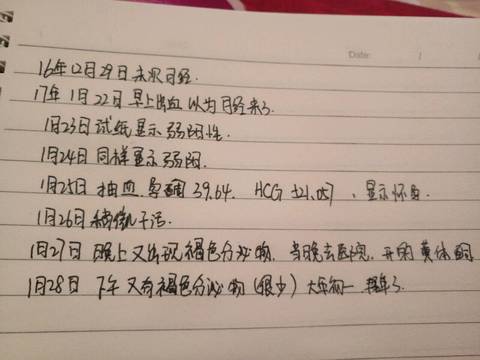 Date: / /
16年12月29日 末次月经.
17年1月22日 早上出血 以为月经来了
1月23日 试纸显示弱阳性.
1月24日 同样显示弱阳.
1月25日 抽血 孕酮 39.64. HCG 、显示怀孕
1月26日 稍微干活.
1月27日 晚上又出现褐色分泌物, 当晚去医院, 开的黄体酮
1月28日 下午又有褐色分泌物(很少) 大年初一